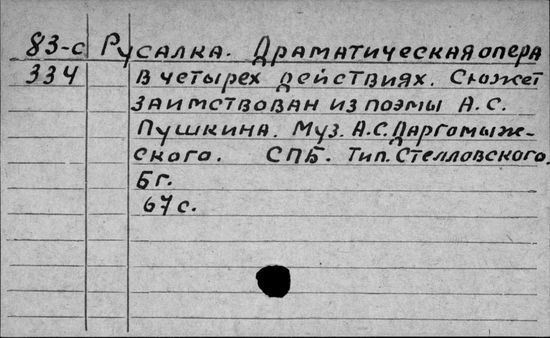 83-с Русалка. Драматическая опера
334 в четырех действиях. Сюжет
заимствован из поэмы А.С.
Пушкина. Муз. А.С. Даргомыж-
ского. СПБ. Тип. Стелловского.
Бг.
67 с.